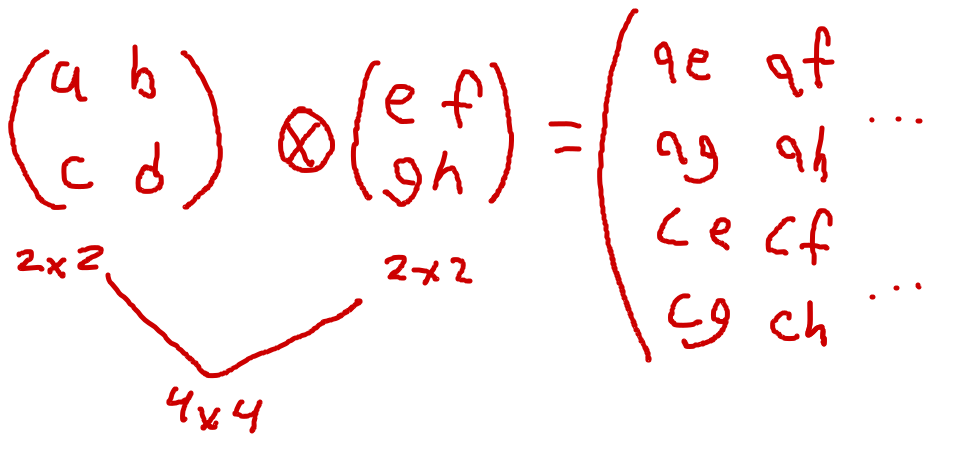 (a b
c d) ⊗ (e f
g h) = (ae af
ag ah ...
ce cf
cg ch ...
2x2 2x2
4x4